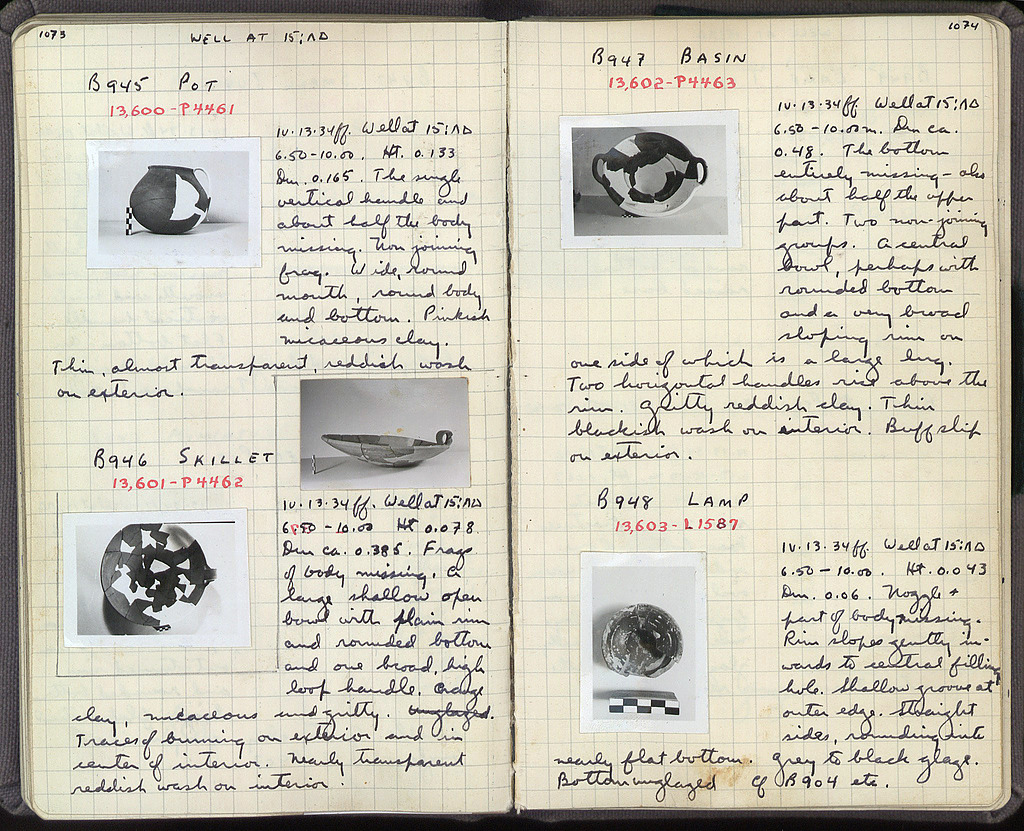 1073
WELL AT 15;ΛΔ
B945 POT
13,600-P4461
IV.13.34ff. Well at 15;ΛΔ
6.50-10.00. Ht. 0.133
Dm. 0.165. The single
vertical handle and
about half the body
missing. Non joining
frag. Wide, round
mouth, round body
and bottom. Pinkish
micaceous clay.
Thin, almost transparent, reddish wash
on exterior.
B946 SKILLET
13,601-P4462
IV.13.34ff. Well at 15;ΛΔ
6.50-10.00 Ht 0.078
Dm ca. 0.385. Frags
of body missing. A
large shallow open
bowl with plain rim
and rounded bottom
and one broad, high
loop handle. Orange
clay, micaceous and gritty. Unglazed.
Traces of burning on exterior and in
center of interior. Nearly transparent
reddish wash on interior.
1074
B947 BASIN
13,602-P4463
IV.13.34ff. Well at 15;ΛΔ
6.50-10.00m. Dm ca.
0.48. The bottom
entirely missing - also
about half the upper
part. Two non-joining
groups. A central
bowl, perhaps with
rounded bottom
and a very broad
sloping rim on
one side of which is a large lug.
Two horizontal handles rise above the
rim. Gritty reddish clay. Thin
blackish wash on interior. Buff slip
on exterior.
B948 LAMP
13,603-L1587
IV.13.34ff. Well at 15;ΛΔ
6.50-10.00. Ht. 0.043
Dm. 0.06. Nozzle +
part of body missing.
Rim slopes gently in-
wards to central filling
hole. Shallow groove at
outer edge. Straight
sides, rounding into
nearly flat bottom. Grey to black glaze.
Bottom unglazed Cf B904 etc.